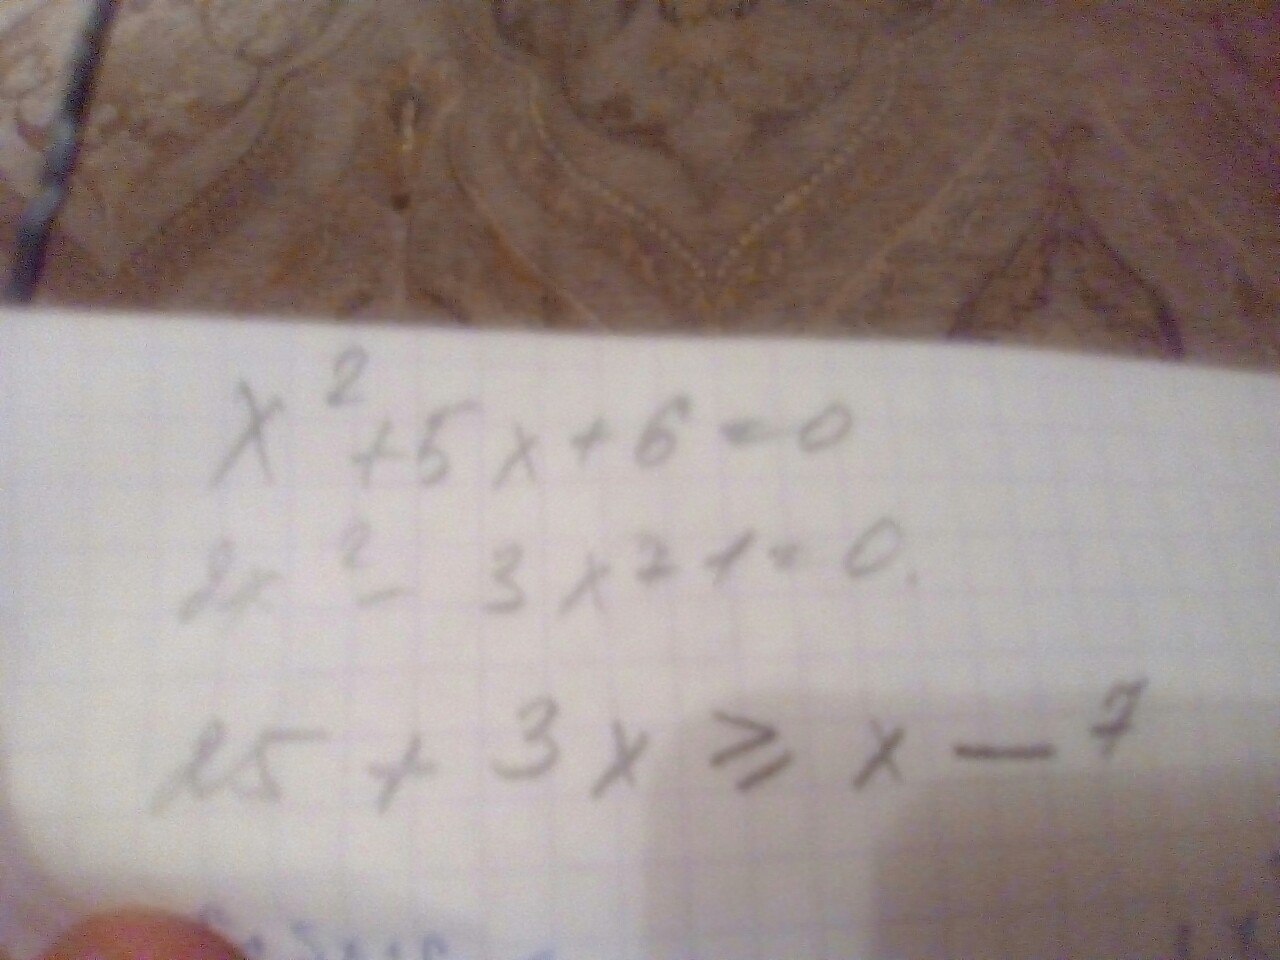 x² + 5x + 6 = 0
2x² - 3x + 1 = 0.
25 + 3x ⩾ x - 7